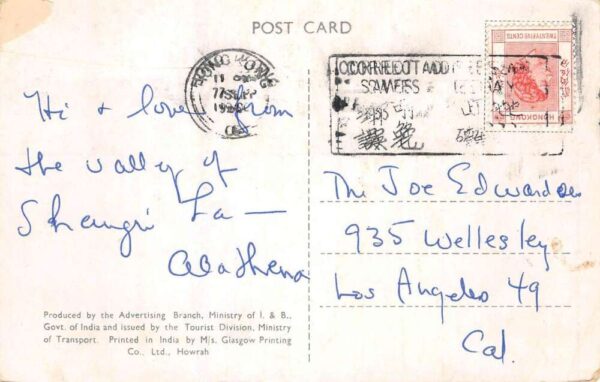 POST CARD
HONG KONG
11
SEP
CORRECT ADD
SAVES
TWENTYFIVE CENTS
HONG KONG
Hi & love from
the valley of
Shangri La —
The Joe Edwardses
935 Wellesley
Los Angeles 49
Cal.
Produced by the Advertising Branch, Ministry of I. & B.,
Govt. of India and issued by the Tourist Division, Ministry
of Transport. Printed in India by M/s. Glasgow Printing
Co., Ltd., Howrah